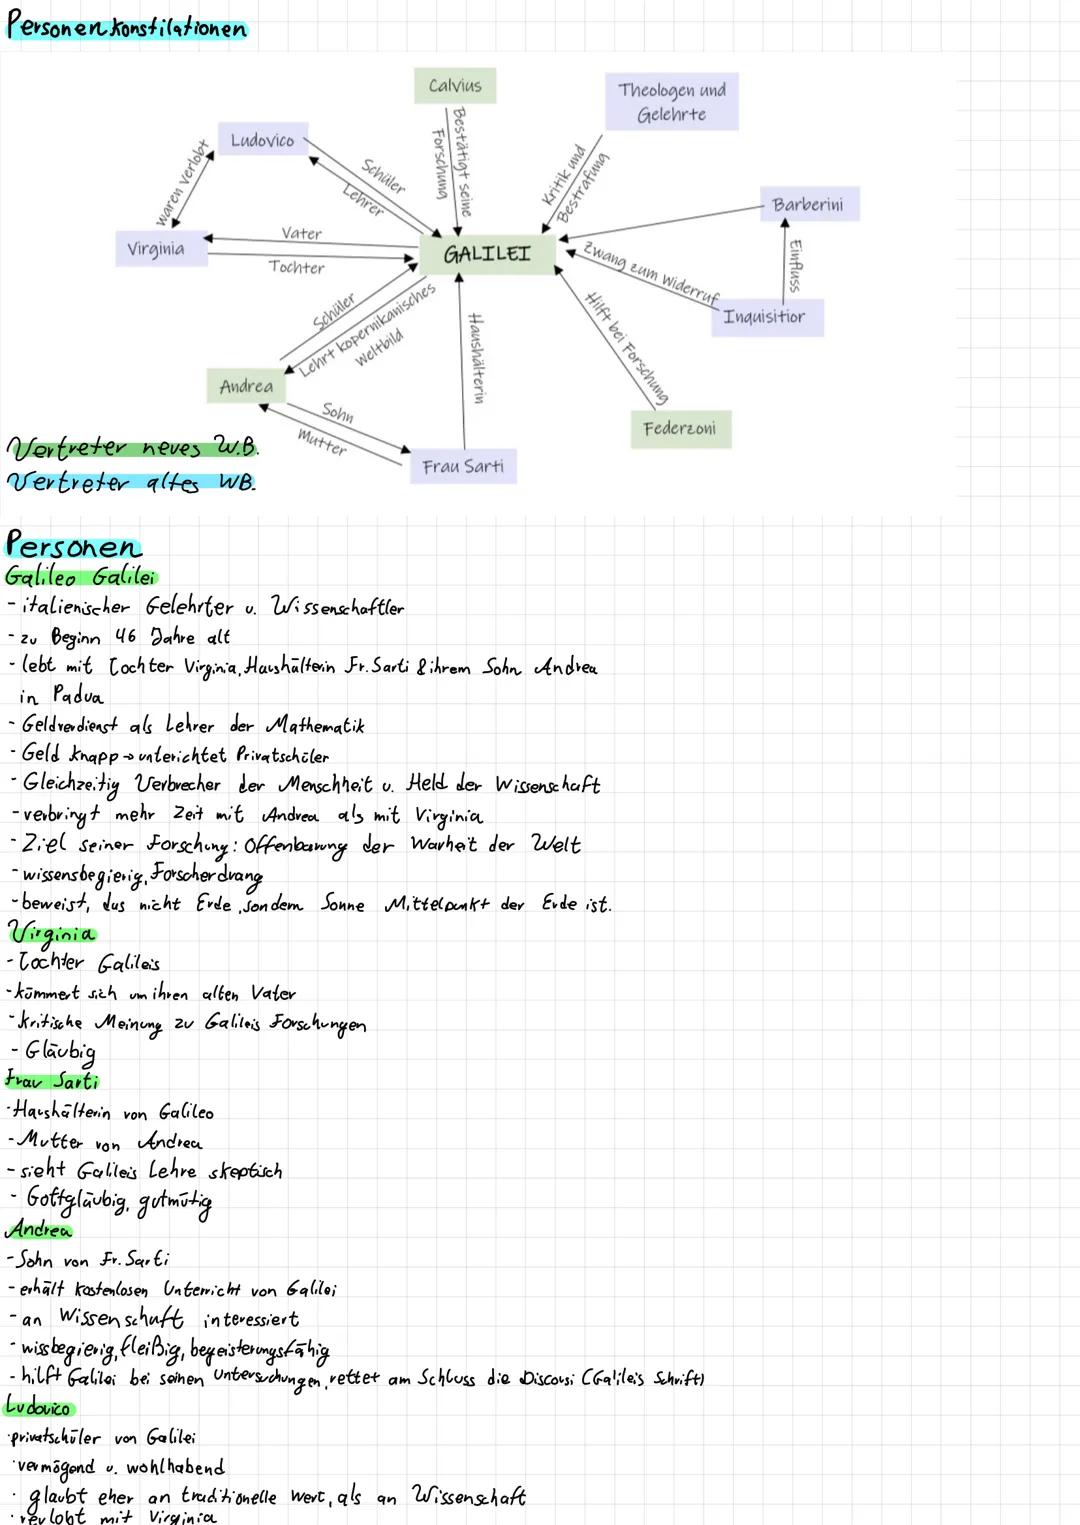 Personenkonstilationen
Calvius
Theologen und
Gelehrte
Ludovico
waren verlobt
Schüler
Lehrer
Bestätigt seine
Forschung
Kritik und
Bestrafung
Barberini
Virginia
Vater
Tochter
GALILEI
Zwang zum Widerruf
Einfluss
Inquisitior
Schüler
Lehrt kopernikanisches
Weltbild
Haushälterin
Hilft bei Forschung
Andrea
Sohn
Mutter
Federzoni
Frau Sarti
Vertreter neues W.B.
Vertreter altes WB.
Personen
Galileo Galilei
- italienischer Gelehrter u. Wissenschaftler
- zu Beginn 46 Jahre alt
- lebt mit Tochter Virginia, Haushälterin Fr. Sarti & ihrem Sohn Andrea
in Padua
- Geldverdienst als Lehrer der Mathematik
- Geld knapp → unterichtet Privatschüler
- Gleichzeitig Verbrecher der Menschheit u. Held der Wissenschaft
- verbringt mehr Zeit mit Andrea als mit Virginia
- Ziel seiner Forschung: Offenbarung der Warheit der Welt
- wissensbegierig, Forscherdrang
- beweist, das nicht Erde, sondern Sonne Mittelpunkt der Erde ist.
Virginia
- Tochter Galileis
- kümmert sich um ihren alten Vater
- kritische Meinung zu Galileis Forschungen
- Gläubig
Frau Sarti
- Haushälterin von Galileo
- Mutter von Andrea
- sieht Galileis Lehre skeptisch
- Gottgläubig, gutmütig
Andrea
- Sohn von Fr. Sarti
- erhält kostenlosen Unterricht von Galilei
- an Wissenschaft interessiert
- wissbegierig, fleißig, begeisterungsfähig
- hilft Galilei bei seinen Untersuchungen, rettet am Schluss die Discorsi (Galileis Schrift)
Ludovico
· privatschüler von Galilei
· vermögend u. wohlhabend
· glaubt eher an traditionelle Wert, als an Wissenschaft
· verlobt mit Virginia